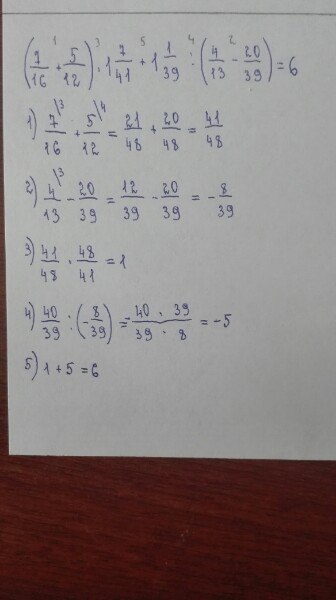 (7/16 + 5/12) · 1 7/41 + 1 1/39 : (4/13 - 20/39) = 6
1) 7/16 + 5/12 = 21/48 + 20/48 = 41/48
2) 4/13 - 20/39 = 12/39 - 20/39 = - 8/39
3) 41/48 · 48/41 = 1
4) 40/39 : (- 8/39) = - 40 · 39/39 · 8 = -5
5) 1 + 5 = 6